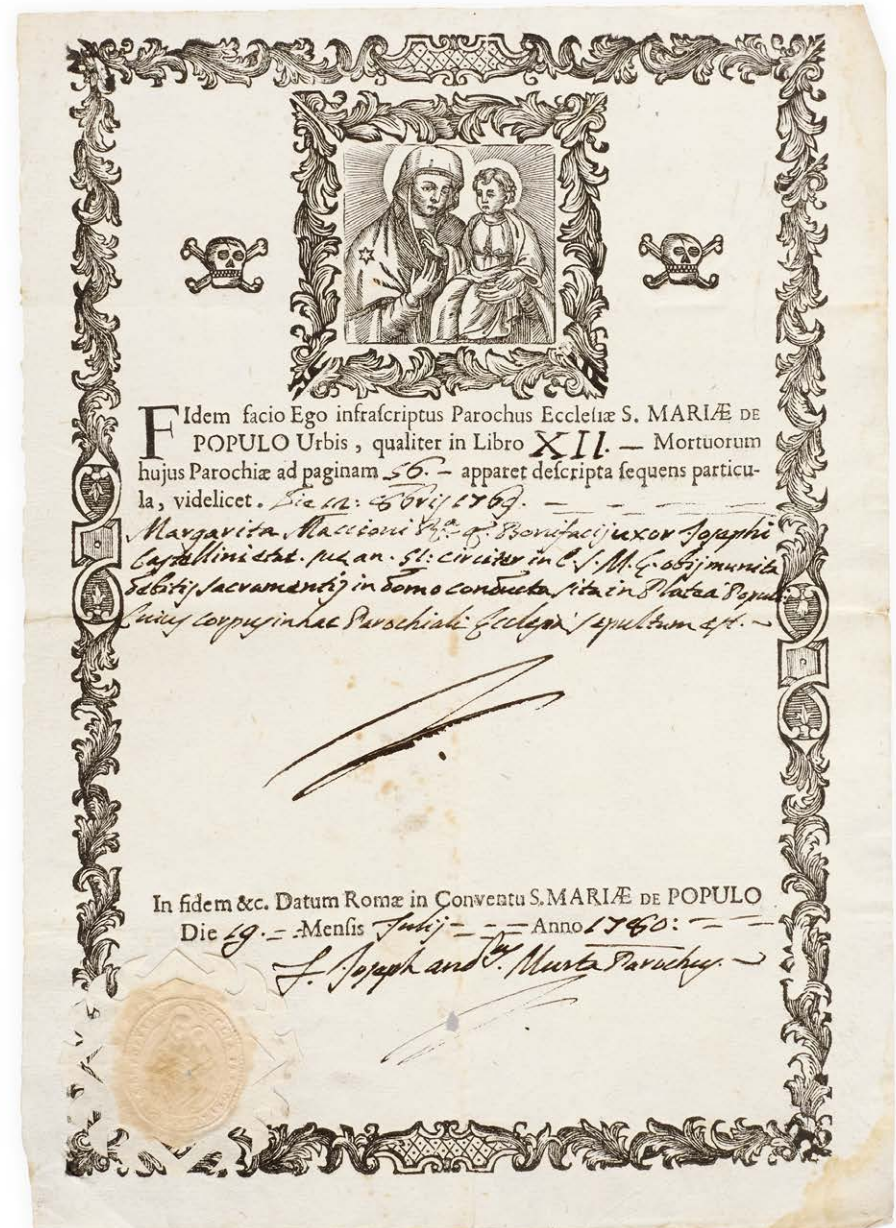 FIdem facio Ego infraſcriptus Parochus Eccleſiæ S. MARIÆ DE
POPULO Urbis, qualiter in Libro XII. — Mortuorum
hujus Parochiæ ad paginam 56. - apparet deſcripta ſequens particu-
la, videlicet. Die 8bris
Margarita Maccioni Bonifacij uxor Josephi
Castellini etat. suæ an. 51: circiter in C. S. M. E. obijt munita
debitis sacramentis in domo conducta sita in Platea Populi
Cuius corpus in hac Parochiali Ecclesia sepultum est. -
In fidem &c. Datum Romæ in Conventu S. MARIÆ DE POPULO
Die 19. - - Menſis Julij - - - Anno 1780: - -
F. Joseph Murta Parochus. -